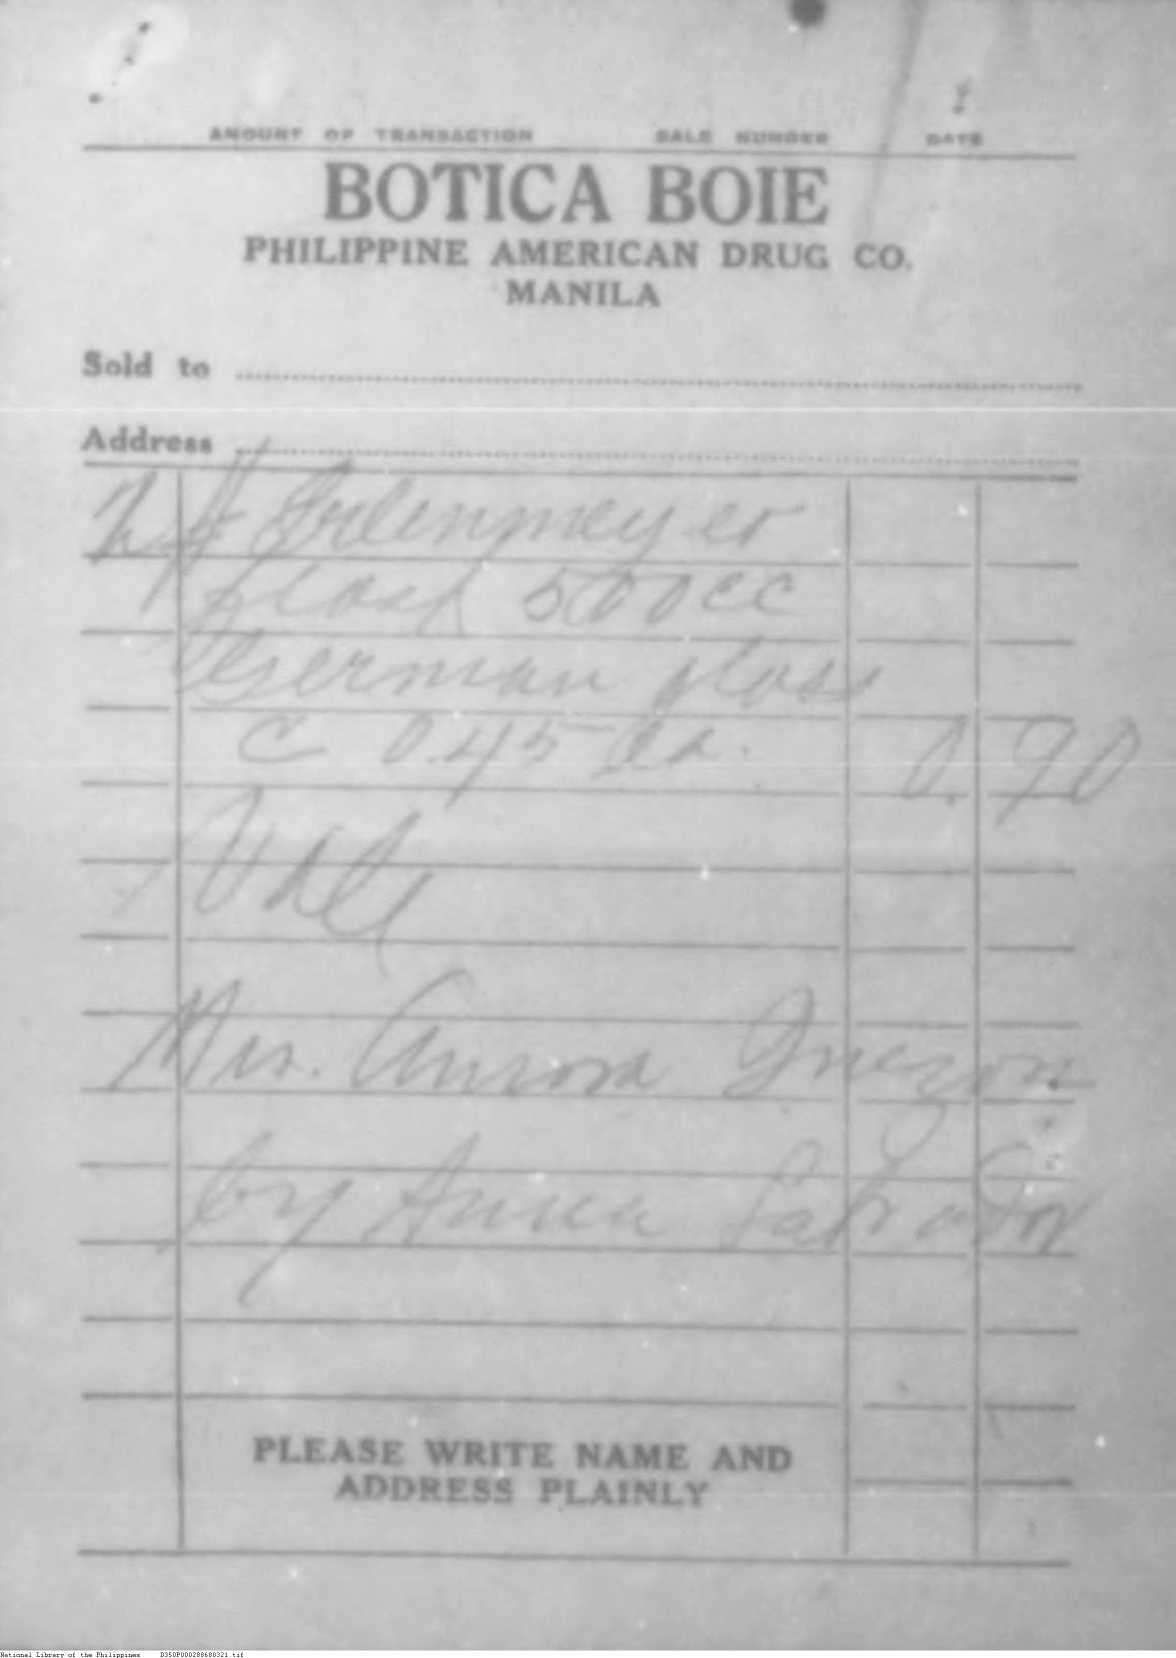 AMOUNT OF TRANSACTION SALE NUMBER DATE
BOTICA BOIE
PHILIPPINE AMERICAN DRUG CO.
MANILA
Sold to
Address
2 Erlenmeyer
flask 500cc
German glass
c 0.45 ea. 0.90
Mrs. Aurora Quezon
by Salvador
PLEASE WRITE NAME AND
ADDRESS PLAINLY
National Library of the Philippines D350P000288680321.tif